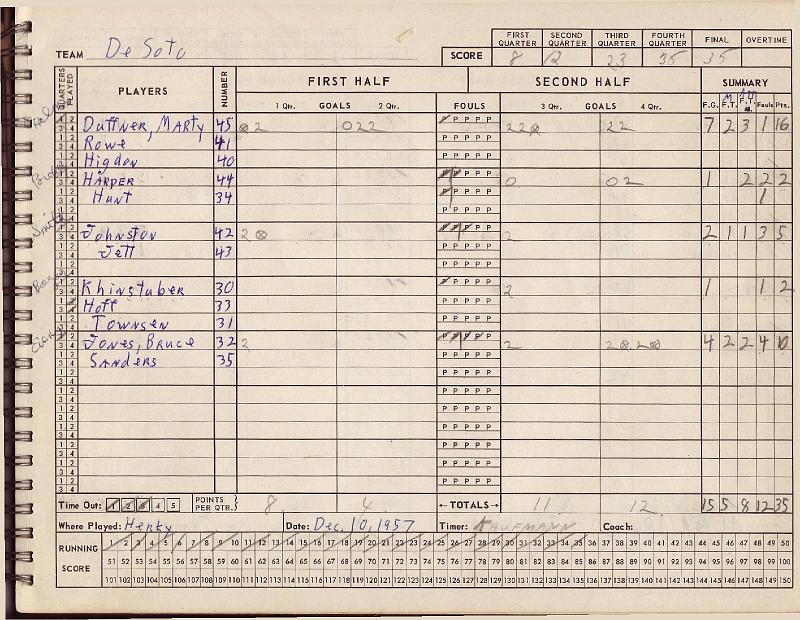 TEAM De Soto
SCORE FIRST QUARTER SECOND QUARTER THIRD QUARTER FOURTH QUARTER FINAL OVERTIME
8 12 23 35 35
QUARTERS PLAYED PLAYERS NUMBER FIRST HALF SECOND HALF SUMMARY
1 Qtr. GOALS 2 Qtr. FOULS 3 Qtr. GOALS 4 Qtr. F.G. F.T. F.T. Fouls Pts.
Duffner, Marty 45 2 022 P P P P P 22 22 7 2 3 1 16
Rowe 41
Higdon 40
Harper 44 0 02 1 2 2 2
Hunt 34 1
Johnston 42 2 2 2 1 1 3 5
Jett 43
Khinstuber 30 2 1 1 2
Hoff 33
Townsen 31
Jones, Bruce 32 2 2 4 2 2 4 10
Sanders 35
Time Out: 1 2 3 4 5 POINTS PER QTR. 8 4 ←TOTALS→ 11 12 15 5 8 12 35
Where Played: Herky Date: Dec. 10, 1957 Timer: Kaufmann Coach:
RUNNING SCORE
1 2 3 4 5 6 7 8 9 10 11 12 13 14 15 16 17 18 19 20 21 22 23 24 25 26 27 28 29 30 31 32 33 34 35 36 37 38 39 40 41 42 43 44 45 46 47 48 49 50
51 52 53 54 55 56 57 58 59 60 61 62 63 64 65 66 67 68 69 70 71 72 73 74 75 76 77 78 79 80 81 82 83 84 85 86 87 88 89 90 91 92 93 94 95 96 97 98 99 100
101 102 103 104 105 106 107 108 109 110 111 112 113 114 115 116 117 118 119 120 121 122 123 124 125 126 127 128 129 130 131 132 133 134 135 136 137 138 139 140 141 142 143 144 145 146 147 148 149 150